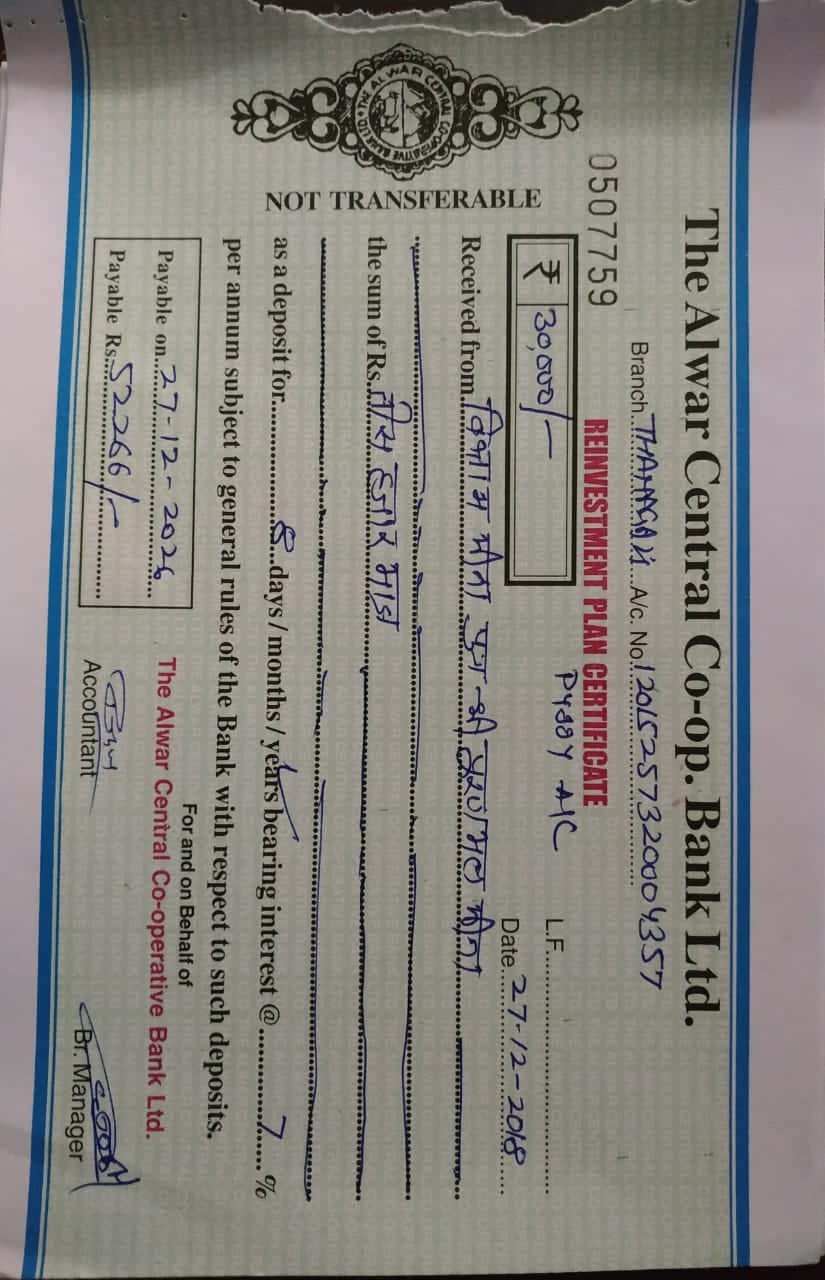 The Alwar Central Co-op. Bank Ltd.
Branch THANAGAZI A/c. No. 12015257320004357
0507759
REINVESTMENT PLAN CERTIFICATE
THE ALWAR CENTRAL CO-OPERATIVE BANK LTD
NOT TRANSFERABLE
₹ 30,000/-
A/C
L.F.
Date 27-12-2018
Received from विश्राम मीना पुत्र श्री पूरणमल मीना
the sum of Rs. तीस हजार मात्र
as a deposit for 8 days / months / years bearing interest @ 7 %
per annum subject to general rules of the Bank with respect to such deposits.
Payable on 27-12-2026
Payable Rs. 52266/-
For and on Behalf of
The Alwar Central Co-operative Bank Ltd.
Accountant
Br. Manager